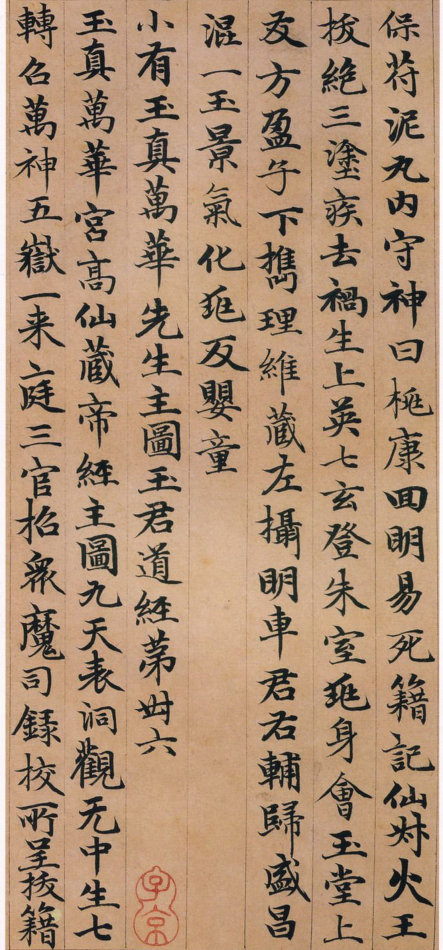 保苻泥丸内守神曰桃康回明易死籍記仙炑火王
拔絶三塗疾去禍生上英七玄登朱室𨈭身會玉堂上
友方盈子下攜理維蔵左攝明車君右輔歸盛昌
混一玉景氣化𨈭反嬰童
小有玉真萬華先生主圖玉君道經苐丗六
玉真萬華宮髙仙蔵帝經主圖九天表洞觀无中生七
轉召萬神五嶽一来庭三官招衆魔司録校所呈拔籍
子京